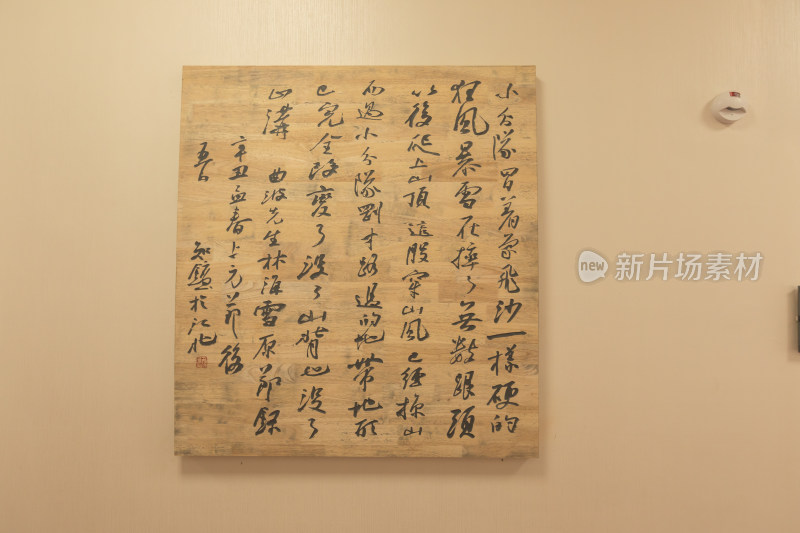 小分隊冒着像飛沙一樣硬的
狂風暴雪在摔了無數跟頭
以後爬上山頂這股穿山風已經掠山
而過小分隊剛才路過的地帶地形
已完全改變了沒了山背也沒了
山溝
曲波先生林海雪原節錄
辛丑孟春上元節後
五日
於江北
new 新片场素材